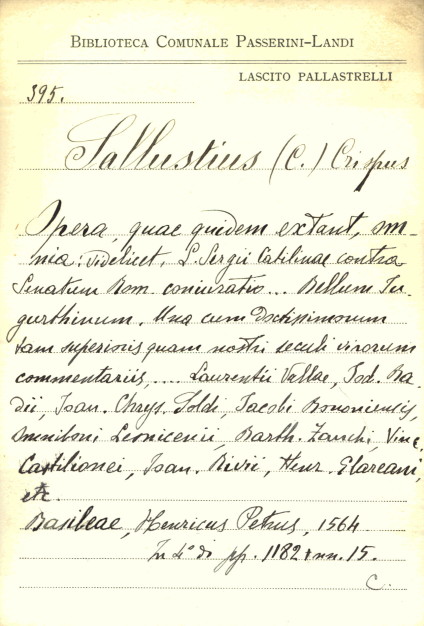 BIBLIOTECA COMUNALE PASSERINI-LANDI
LASCITO PALLASTRELLI
395.
Sallustius (C.) Crispus
Opera, quae quidem extant, om-
nia: videlicet, L. Sergii Catilinae contra
Senatum Rom. coniuratio... Bellum Iu-
gurthinum. Una cum doctissimorum
tam superioris quam nostri seculi virorum
commentariis,.... Laurentii Vallae, Iod. Ba-
dii, Ioan. Chrys. Soldi, Iacobi Bononiensis,
Omniboni Leonicenii, Barth. Zanchi, Vinc.
Castilionei, Ioan. Rivii, Henr. Glareani,
etc.
Basileae, Henricus Petrus, 1564.
In 4° di pp. 1182 + nn. 15.
C.